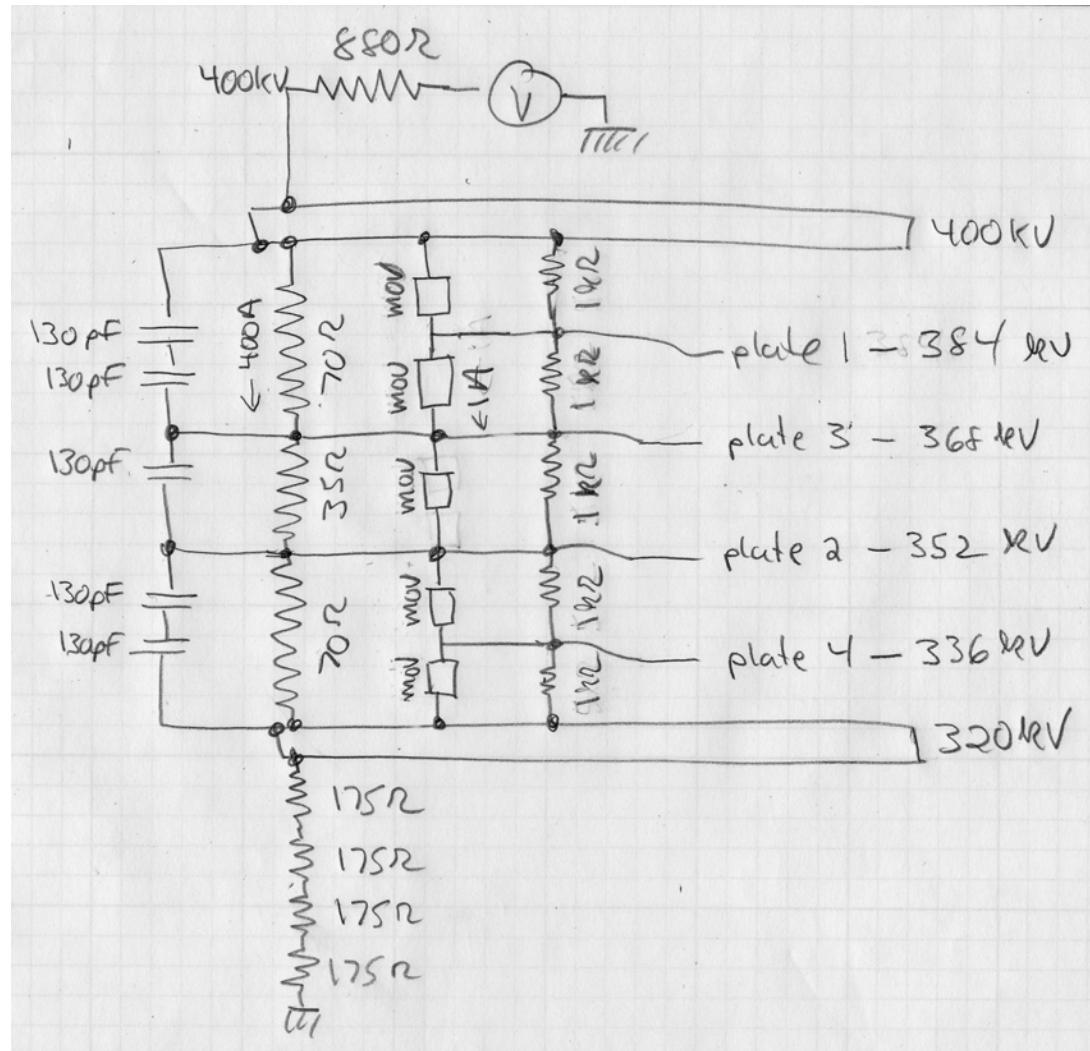 880Ω
400kV
V
400kV
130pF
130pF
130pF
130pF
130pF
←400A
70Ω
35Ω
70Ω
mov
mov
mov
mov
mov
←1A
1kΩ
1kΩ
1kΩ
1kΩ
1kΩ
plate 1 - 384 kV
plate 3 - 368 kV
plate 2 - 352 kV
plate 4 - 336 kV
320kV
175Ω
175Ω
175Ω
175Ω